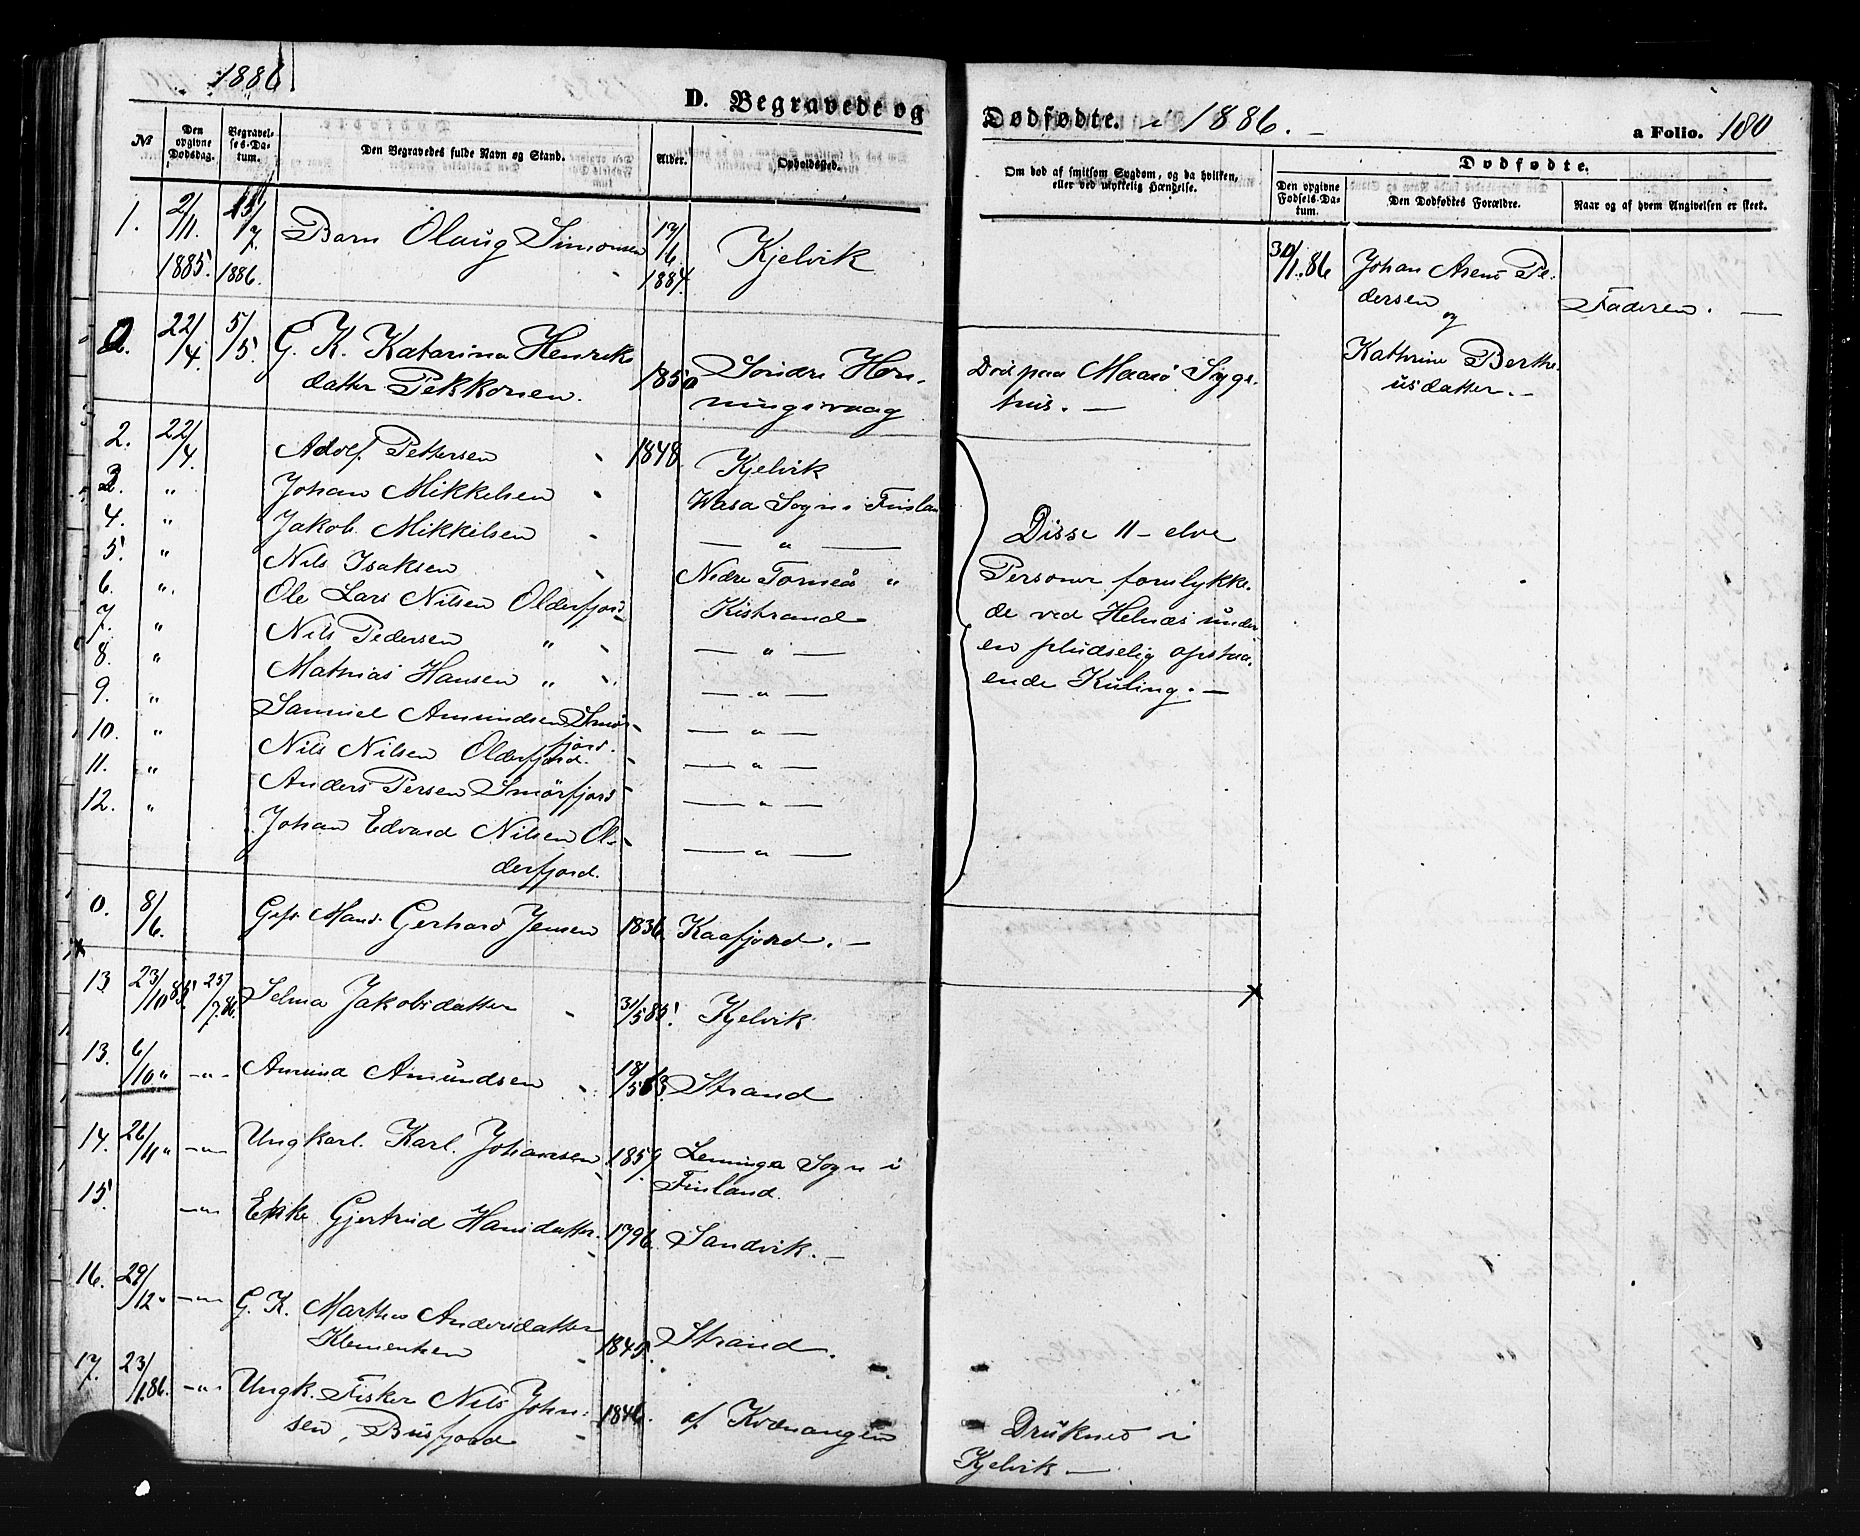 1886
D. Begravede og
Dødfødte. i 1886. –
a Folio. 180
No
Den opgivne Dødsdag.
Begravelses-Datum.
Den Begravedes fulde Navn og Stand.
Alder.
Opholdssted.
Om død af smitsom Sygdom, og da hvilken, eller ved ulykkelig Hændelse.
Dødfødte.
Den opgivne Fødsels-Datum.
Den Dødfødtes Forældre.
Naar og af hvem Angivelsen er skeet.
1. 2/11 1885. 1886. Barn Olaug Simonsen 1884. Kjelvik
30/1.86 Johan Arent Pe-
dersen
og
Kathrine Berthe
usdatter. –
Faderen. –
22/4. 5/5. G. K. Katarina Henriks
datter Pekkonen. 1850 Søndre Hon-
ningsvaag
Død paa Maasø Syge-
hus. –
2. 22/4. Adolf Pettersen 1848. Kjelvik
3. " Johan Mikkelsen Wasa Sogn i Finlan
4. " Jakob Mikkelsen — " —
5. " Nils Isaksen Nedre Torneå "
6. " Ole Lars Nilsen Olderfjord Kistrand
7. " Nils Pedersen " — " —
8. " Mathias Hansen " — " —
9. " Samuel Amundsen Smør-
fjord. — " —
10. " Nils Nilsen Olderfjord. — " —
11. " Anders Persen Smørfjord — " —
12. " Johan Edvard Nilsen Ol-
derfjord. — " —
Disse 11 – elve
Personer forulykke-
de ved Helnæs under
en pludselig opstaa-
ende Kuling. –
0. 8/6. Gift Mand Gerhard Jensen 1836. Kaafjord. –
13 23/10 85. 25/7.86. Selma Jakobsdatter 31/5 85. Kjelvik
13. 6/10 " – " – Amund Amundsen Strand
14. 26/11 " – " – Ungkarl. Karl. Johansen 1859. Leminga Sogn i
Finland.
15. – " – Enke Gjertrud Hansdatter. 1796. Sandvik. –
16. 29/12 " – " – G. K. Marthe Andersdatter
Klementsen 1845. Strand.
17. 23/1.86. – " – Ungk. Fisker Nils John-
sen, Busfjord 1846. af Kvænangen
Druknet i
Kjelvik –